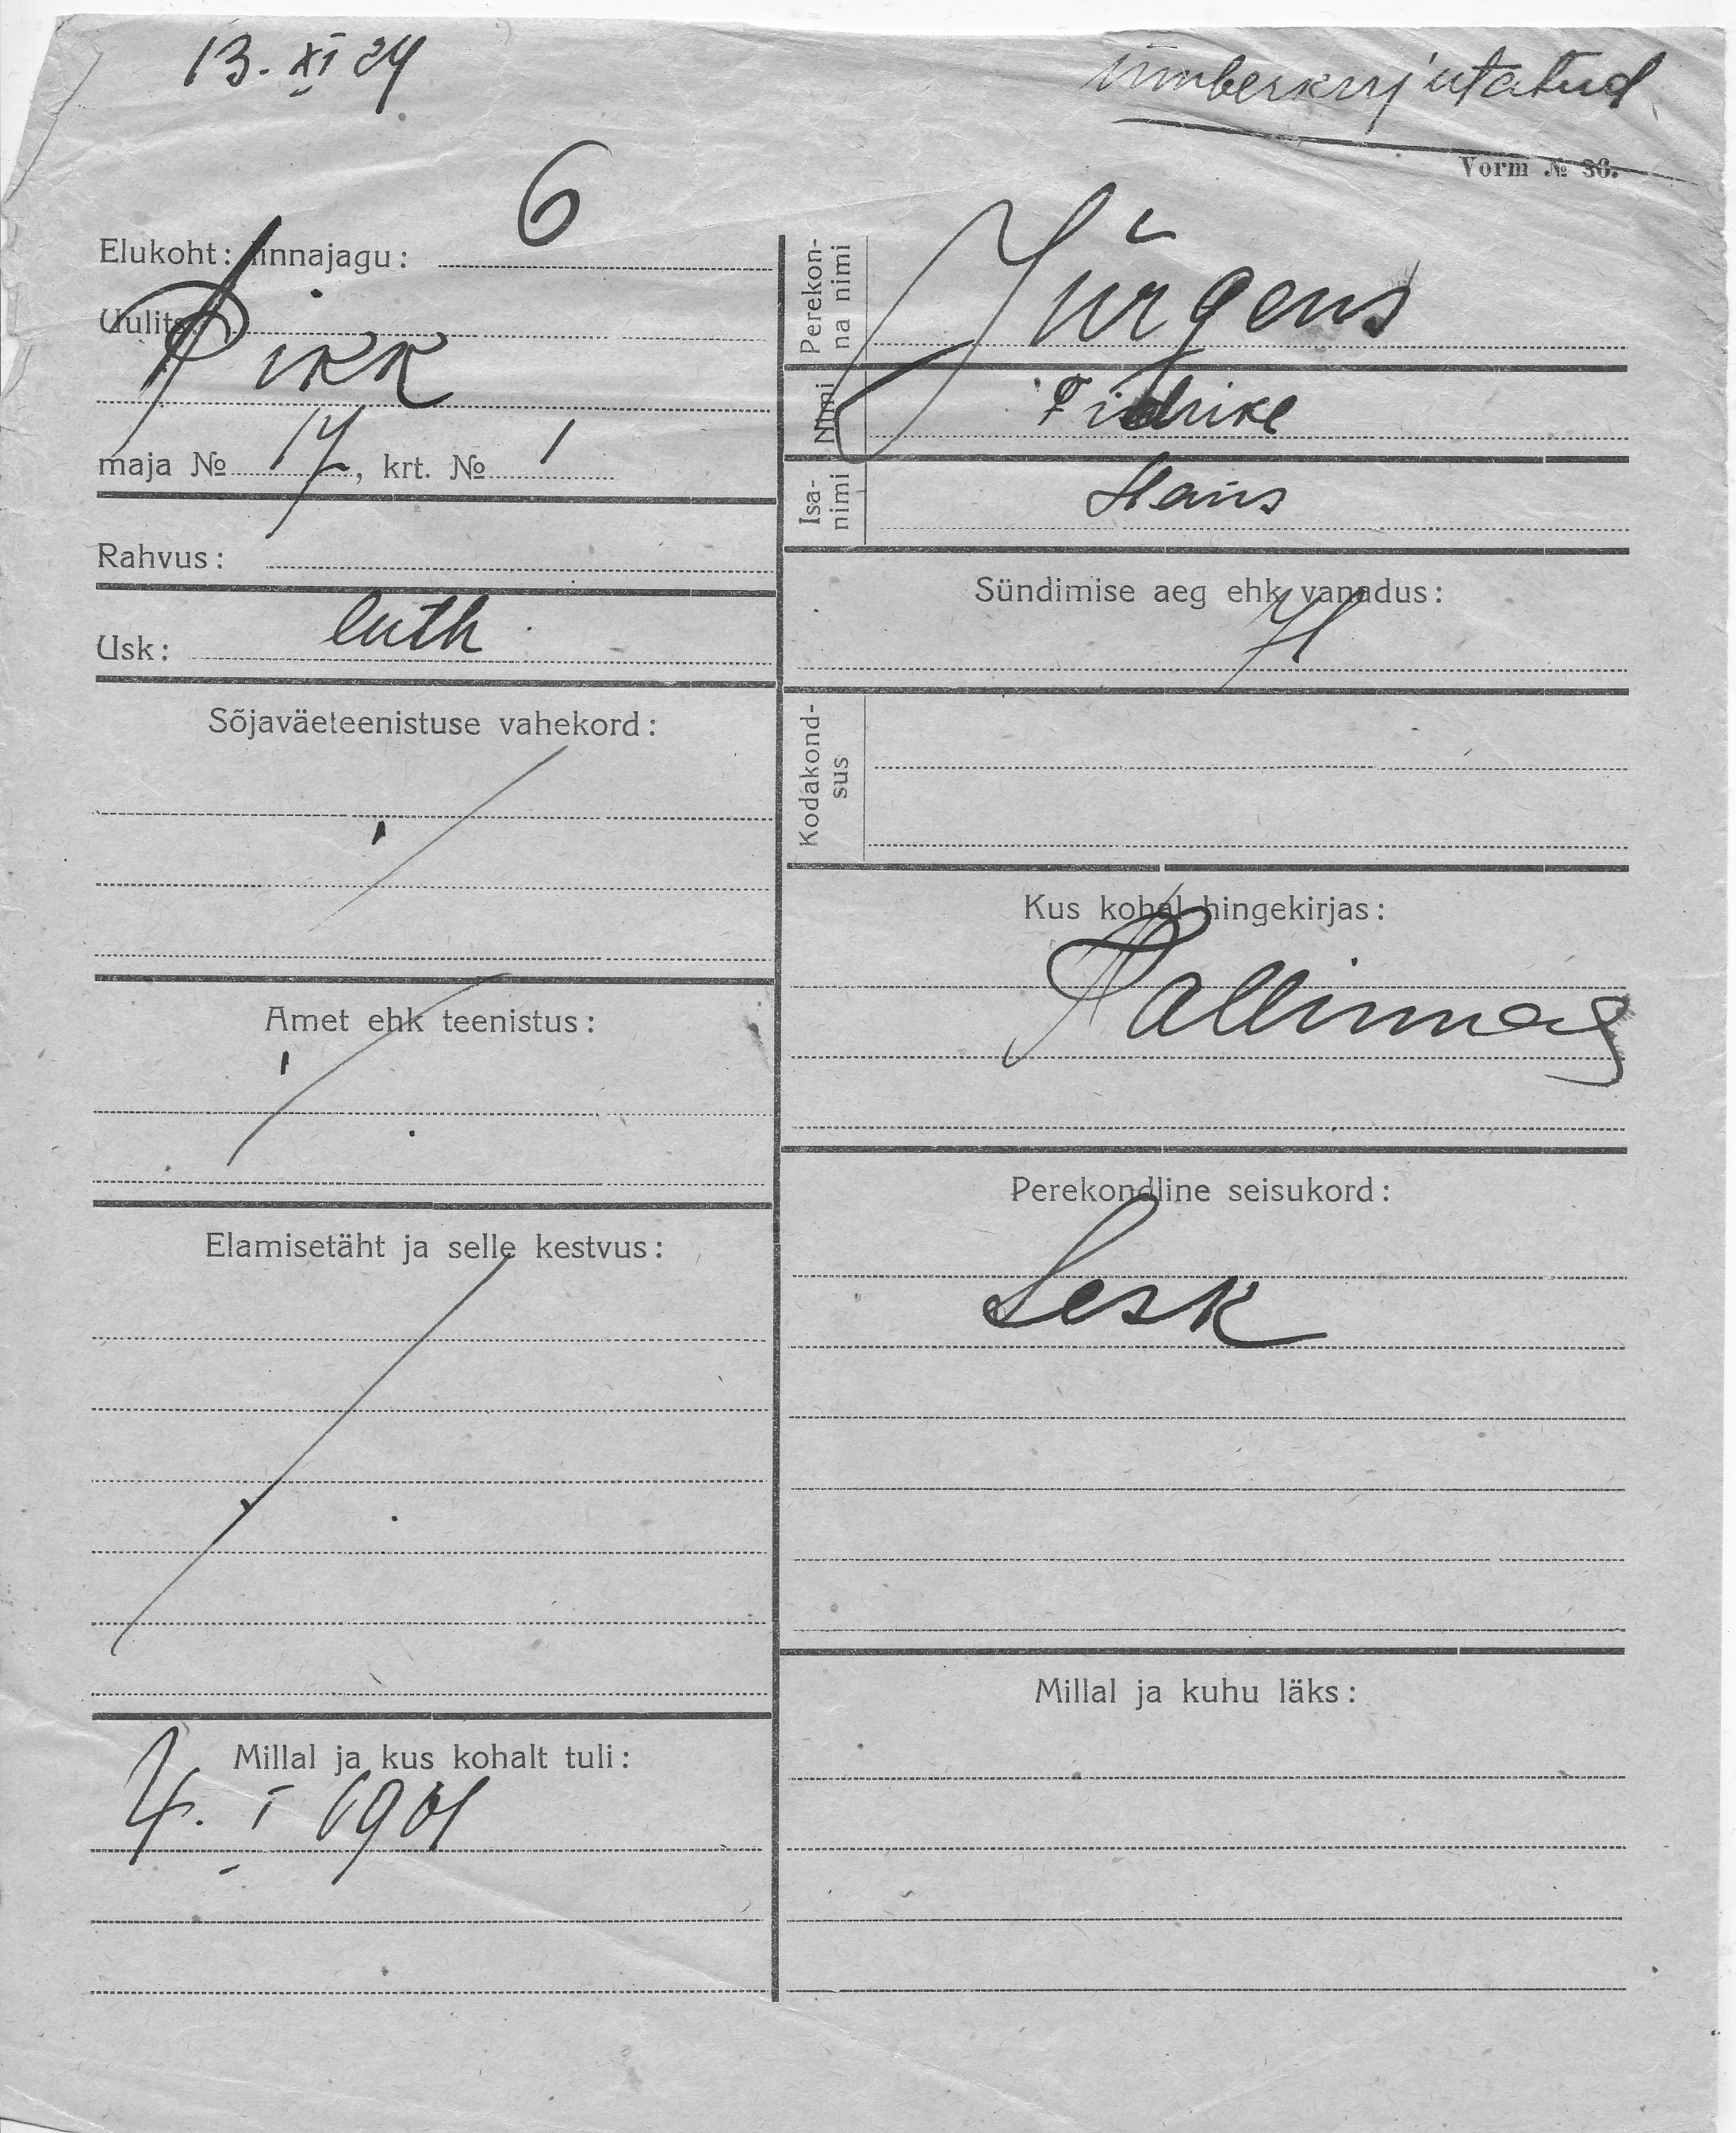 13. XI 24
ümberkirjutatud
Vorm № 36.
Elukoht: linnajagu: 6
Uulits: Pikk
maja № 17, krt. № 1
Rahvus:
Usk: luth
Sõjaväeteenistuse vahekord:
Amet ehk teenistus:
Elamisetäht ja selle kestvus:
Millal ja kus kohalt tuli:
4. I 1901
Perekon-
na nimi
Jürgens
Nimi
Isa-
nimi
Hans
Sündimise aeg ehk vanadus:
71
Kodakond-
sus
Kus kohal hingekirjas:
Tallinnas
Perekondline seisukord:
Lesk
Millal ja kuhu läks: